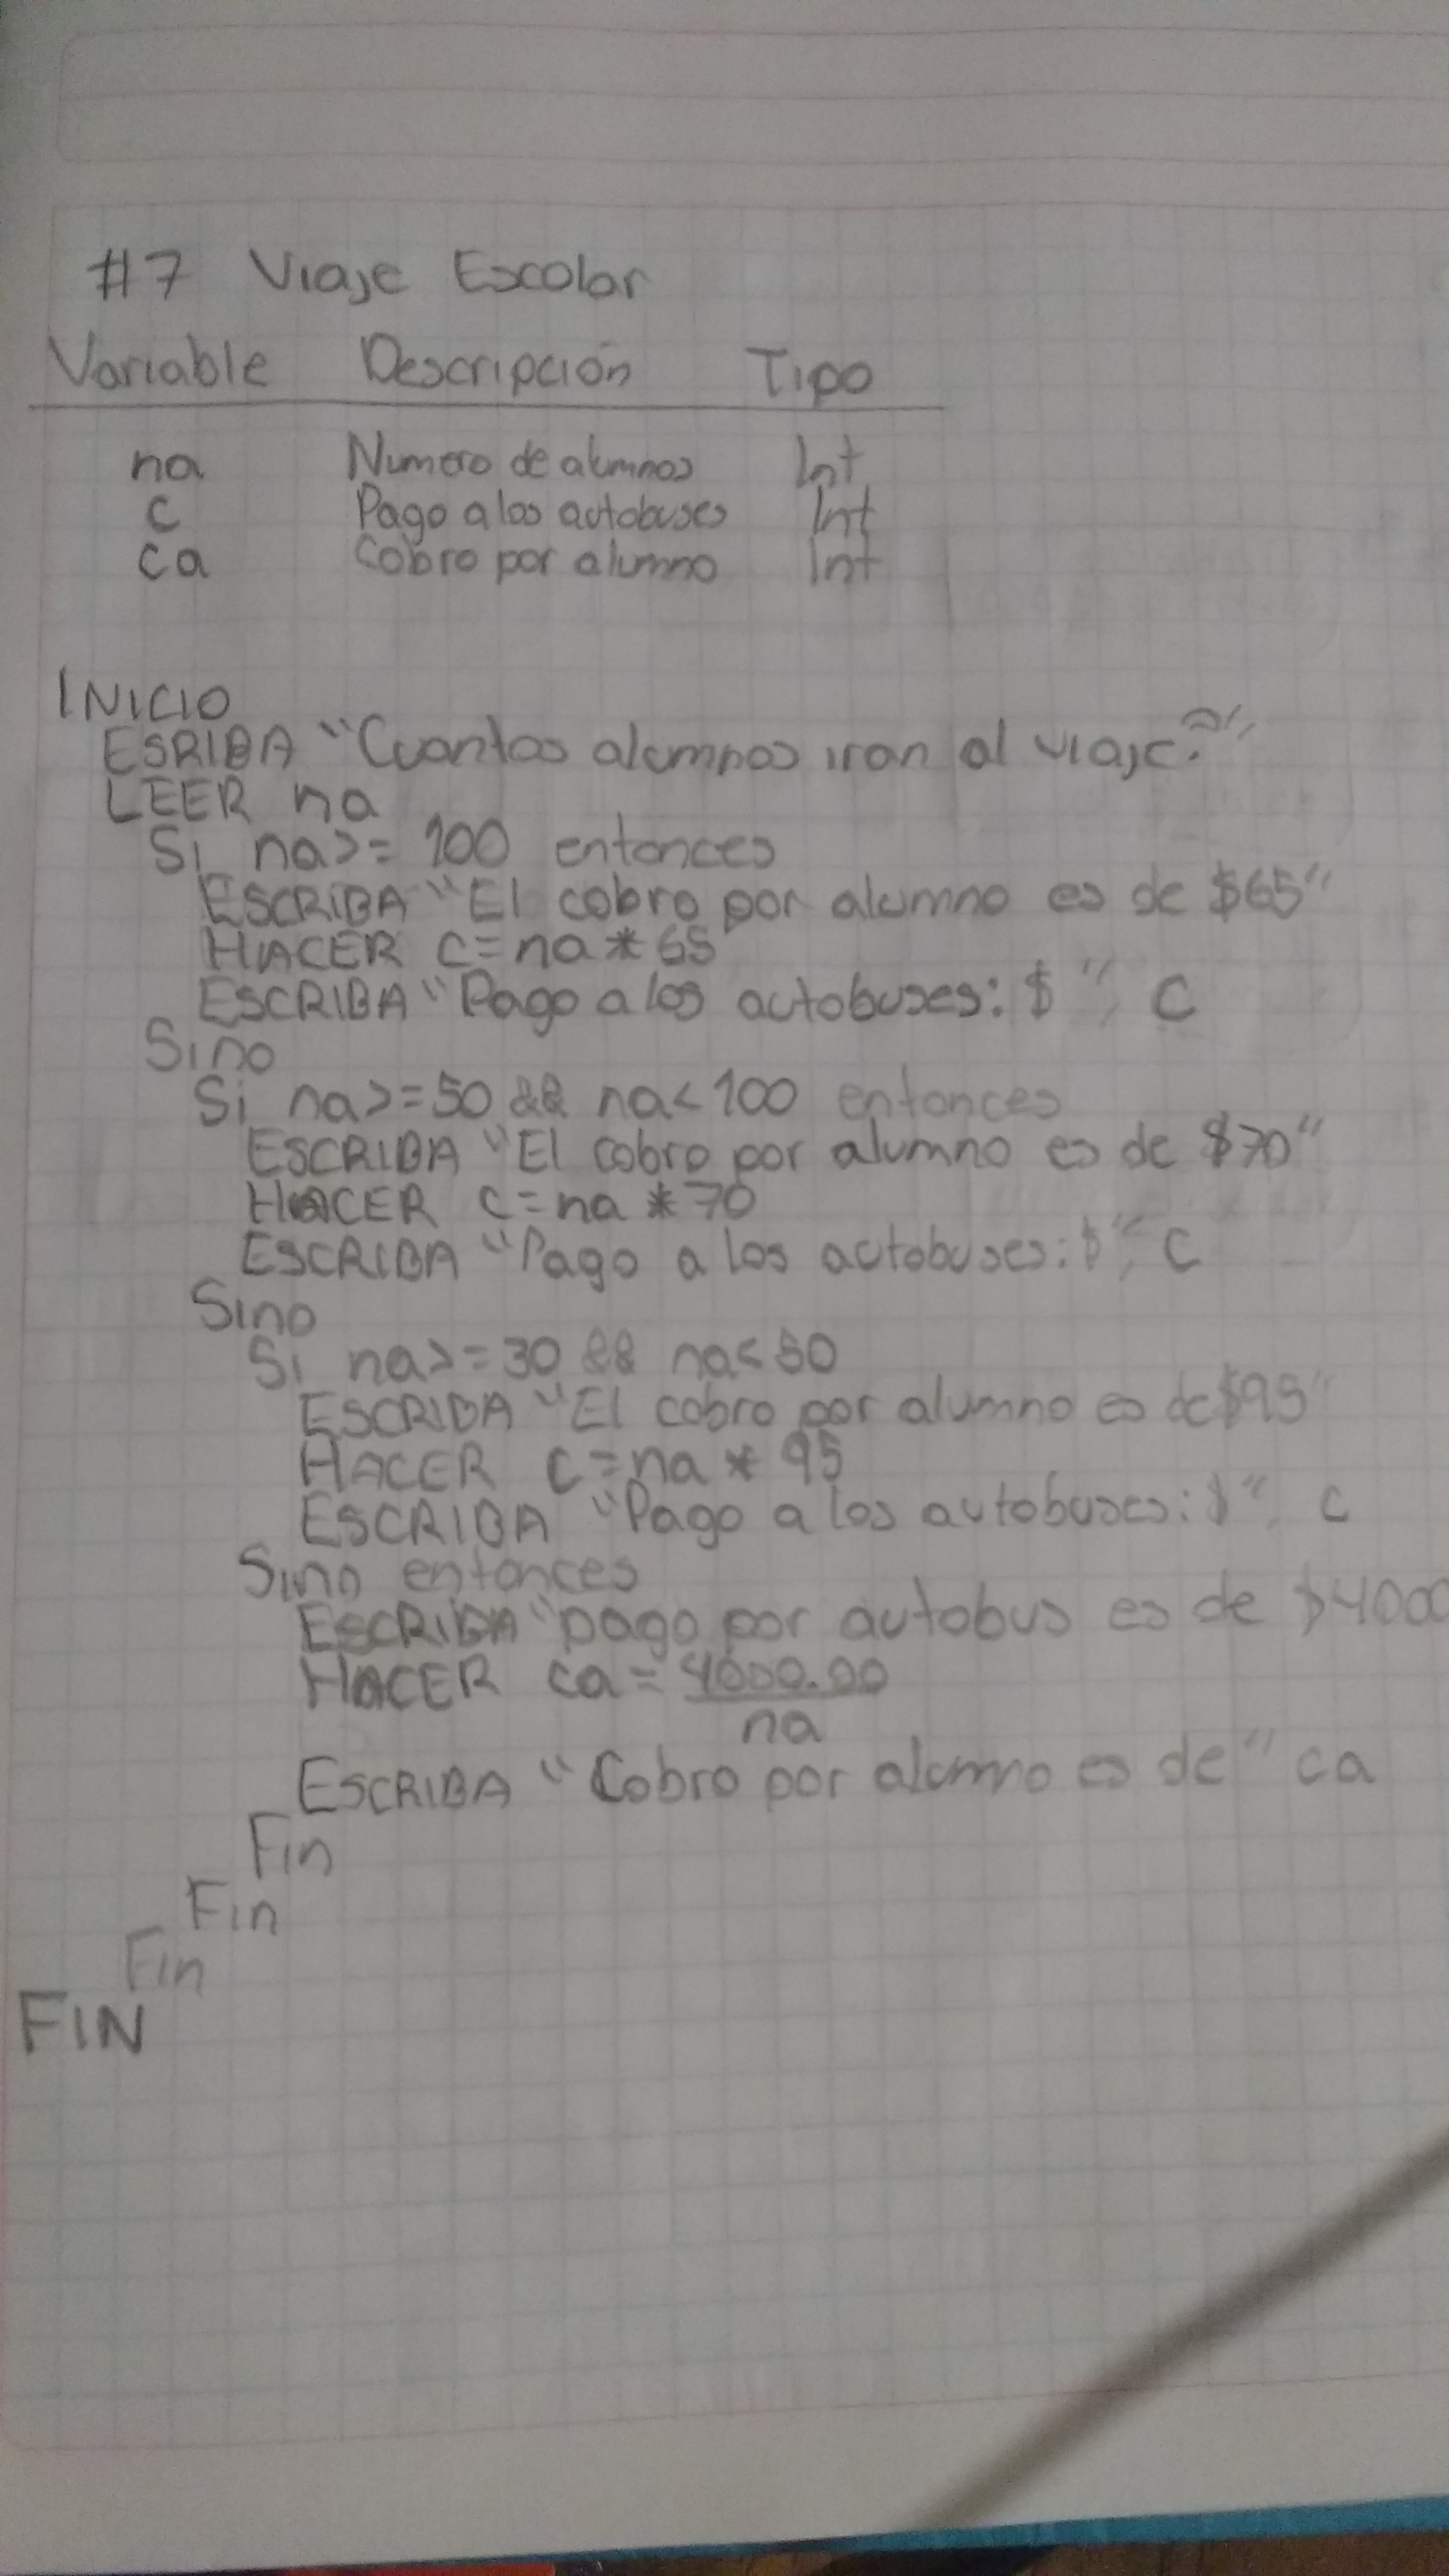 #7 Viaje Escolar
Variable Descripción Tipo
na Numero de alumnos Int
c Pago a los autobuses Int
ca Cobro por alumno Int
INICIO
ESRIBA "Cuantos alumnos iran al viaje?"
LEER na
Si na>= 100 entonces
ESCRIBA "El cobro por alumno es de $65"
HACER c=na*65
ESCRIBA "Pago a los autobuses: $", c
Sino
Si na>=50 && na<100 entonces
ESCRIBA "El cobro por alumno es de $70"
HACER c=na*70
ESCRIBA "Pago a los autobuses:$", c
Sino
Si na>=30 && na<50
ESCRIBA "El cobro por alumno es de $95"
HACER c=na*95
ESCRIBA "Pago a los autobuses:$", c
Sino entonces
ESCRIBA "pago por autobus es de $4000
HACER ca=4000.00
na
ESCRIBA "Cobro por alumno es de" ca
Fin
Fin
Fin
FIN